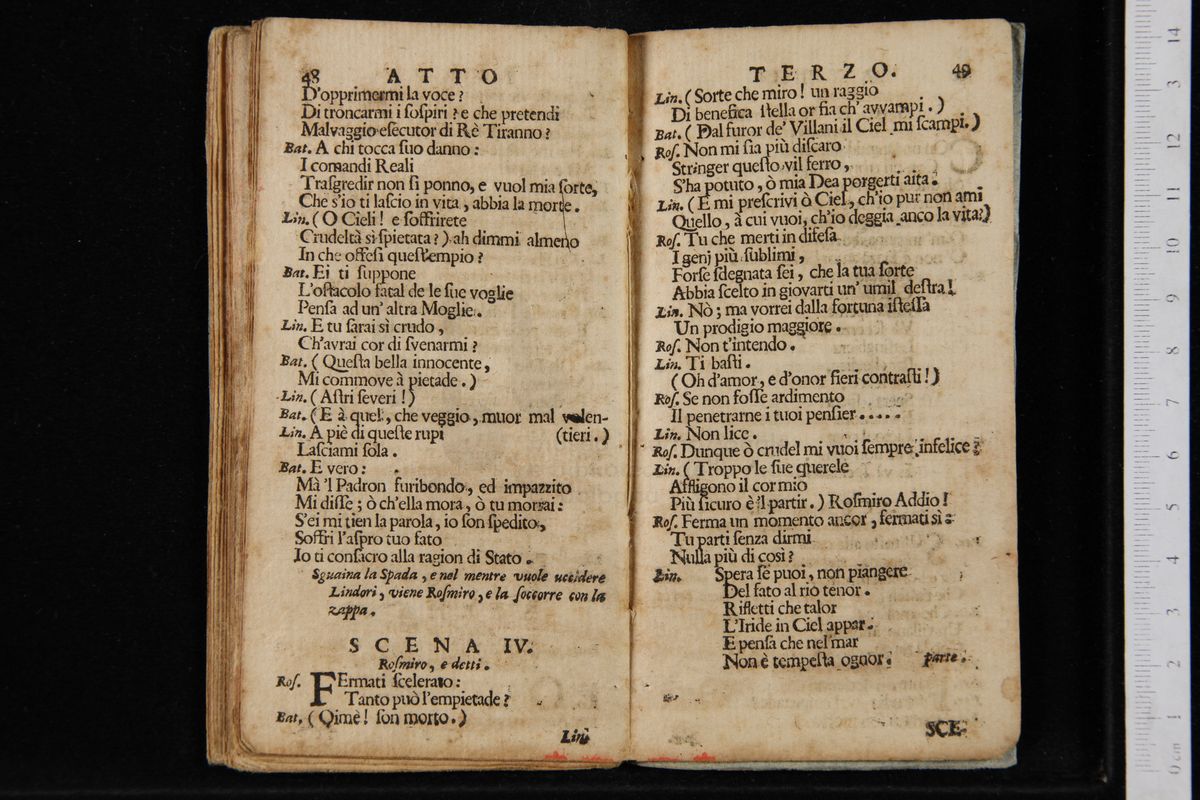 48 ATTO
D'opprimermi la voce ?
Di troncarmi i ſoſpiri ? e che pretendi
Malvaggio eſecutor di Rè Tiranno ?
Bat. A chi tocca ſuo danno :
I comandi Reali
Traſgredir non ſi ponno, e vuol mia ſorte,
Che s'io ti laſcio in vita , abbia la morte.
Lin. ( O Cieli ! e ſoffrirete
Crudeltà sì ſpietata ? ) ah dimmi almeno
In che offeſi queſt'empio ?
Bat. Ei ti ſuppone
L'oſtacolo fatal de le ſue voglie
Penſa ad un' altra Moglie.
Lin. E tu ſarai sì crudo ,
Ch'avrai cor di ſvenarmi ?
Bat. ( Queſta bella innocente,
Mi commove à pietade . )
Lin. ( Aſtri ſeveri ! )
Bat. ( E à quel , che veggio , muor mal volen-
Lin. A piè di queſte rupi (tieri . )
Laſciami ſola .
Bat. E vero :
Mà 'l Padron furibondo , ed impazzito
Mi diſſe ; ò ch'ella mora , ò tu morrai :
S'ei mi tien la parola, io ſon ſpedito,
Soffri l'aſpro tuo fato
Io ti conſacro alla ragion di Stato .
Sguaina la Spada , e nel mentre vuole uccidere
Lindori , viene Roſmiro , e la ſoccorre con la
zappa .
SCENA IV.
Roſmiro, e detti .
Roſ. FErmati ſcelerato :
Tanto può l'empietade ?
Bat. ( Oimè ! ſon morto . )
Lin
TERZO. 49
Lin. ( Sorte che miro ! un raggio
Di benefica ſtella or fia ch' avvampi . )
Bat. ( Dal furor de' Villani il Ciel mi ſcampi. )
Roſ. Non mi ſia più diſcaro
Stringer queſto vil ferro ,
S'ha potuto , ò mia Dea porgerti aita .
Lin. ( E mi preſcrivi ò Ciel , ch'io pur non ami
Quello , à cui vuoi, ch'io deggia anco la vita?)
Roſ. Tu che merti in difeſa
I genj più ſublimi ,
Forſe ſdegnata ſei , che la tua ſorte
Abbia ſcelto in giovarti un' umil deſtra !
Lin. Nò ; ma vorrei dalla fortuna iſteſſa
Un prodigio maggiore .
Roſ. Non t'intendo .
Lin. Ti baſti .
( Oh d'amor , e d'onor fieri contraſti ! )
Roſ. Se non foſſe ardimento
Il penetrarne i tuoi penſier . . . . .
Lin. Non lice .
Roſ. Dunque ò crudel mi vuoi ſempre infelice ?
Lin. ( Troppo le ſue querele
Affligono il cor mio
Più ſicuro è 'l partir. ) Roſmiro Addio !
Roſ. Ferma un momento ancor , fermati sì :
Tu parti ſenza dirmi
Nulla più di così ?
Lin. Spera ſe puoi , non piangere
Del fato al rio tenor .
Rifletti che talor
L'Iride in Ciel appar .
E penſa che nel mar
Non è tempeſta ognor . parte .
SCE-
0 cm 1 2 3 4 5 6 7 8 9 10 11 12 13 14